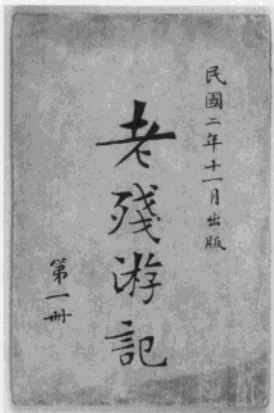 民國二年十一月出版
老殘游記
第一冊